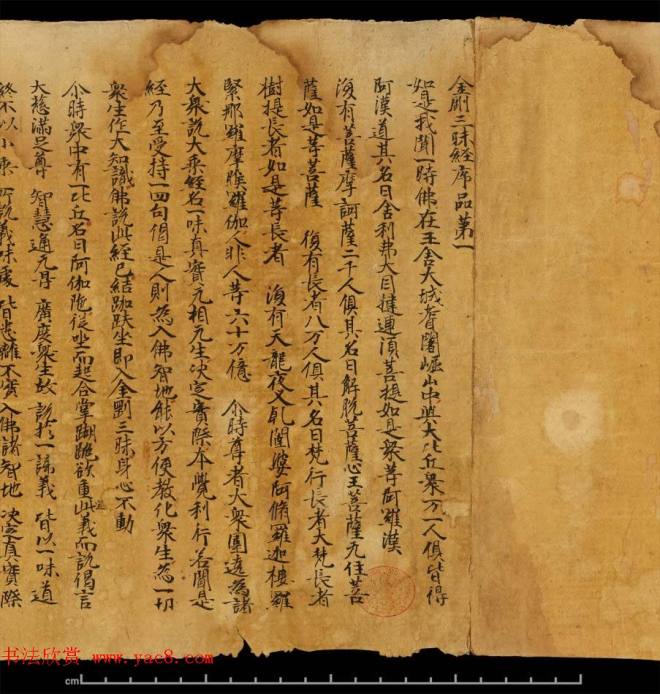 金剛三昧経序品第一
如是我聞一時佛在王舍大城耆闍崛山中與大比丘衆万一人俱皆得
阿漢道其名曰舍利弗大目揵連湏菩提如是衆等阿羅漢
復有菩薩摩訶薩二千人俱其名曰解脫菩薩心王菩薩无住菩
薩如是等菩薩 復有長者八万人俱其名曰梵行長者大梵長者
樹提長者如是等長者 復有天龍夜叉乹闥婆阿脩羅迦樓羅
緊那羅摩睺羅伽人非人等六十万億 尒時尊者大衆圍遶為諸
大衆說大乘經名一味真實无相无生決定實際本覺利行若聞是
經乃至受持一四句偈是人則為入佛智地能以方便教化衆生為一切
衆生作大知識佛說此經已結跏趺坐即入金剛三昧身心不動
尒時衆中有一比丘名曰阿伽陁從坐而起合掌䠒跪欲重此義而說偈言
大慈滿足尊 智慧通无㝵 廣度衆生故 說於一諦義 皆以一味道
終不以小乘 所說義味處 皆悉離不實 入佛諸智地 決定真實際
书法欣赏 www.yac8.com
cm